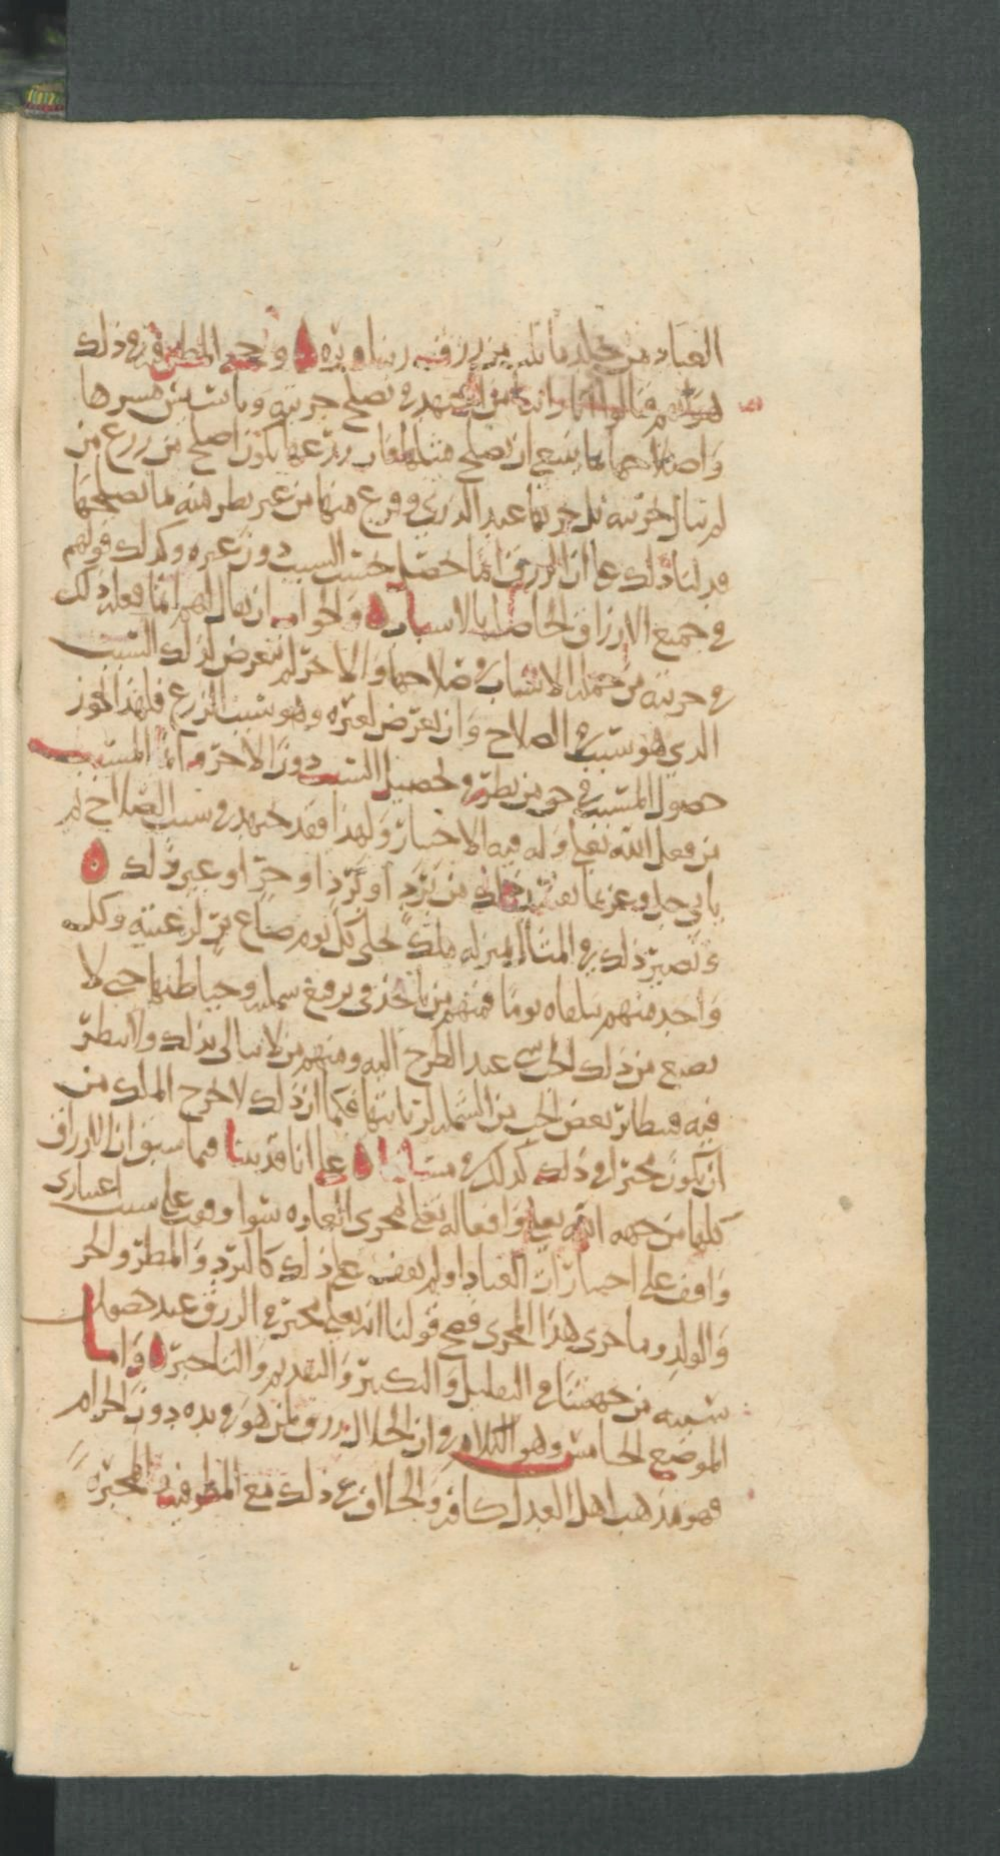 العباد من جملة ما تلد من رزقه ربنا ويره ٥ وحجه المطرفيه في ذلك
هو انهم قالوا انا راينا من اجتهد في تصلح جربته وما شيته مسرها
واصلاحهما بما ينبغي ان تصلح مثلهما فان زرعها يكون اصلح من زرع من
لم تنال جربته بل جربها عبد الذري وفرع منها من غير نظر منه ما يصلحها
فدلنا ذلك على ان الرزق انما حصل بحسب السبب دون غيره وكذلك قولهم
في جميع الارزاق الحاصله بالاسباب ٥ والجواب ان يقال لهم انما فعله ذلك
في جربته من جمله الاسباب في صلاحها والاخر لم يتعرض لذلك السبب
الذي هو سبب في الصلاح وان تعرض لغيره وهو سبب الزرع فلهذا يجوز
حصول المسبب في حق من نظر في تحصيل السبب دون الاخر وانما المسبب
من فعل الله تعالى وله فيه الاختيار ولهذا فقد يجتهد في سبب الصلاح ثم
ياتي جل وعز بما يفسد ذلك من برد او برد او حر او غير ذلك ٥
ونصير ذلك في المثال بمنزله ملك يخلي كل يوم صاع بر لرعيته وكل
واحد منهم يتلقاه يوما فمنهم من ياخذ في ترقيع سمله وخياطتها حتى لا
يضيع من ذلك الحب شي عند الطرح اليه ومنهم من لا يبالي بذلك ولا ينظر
فيه فيتطاير بعض الحب من السمله لرثاثتها فكما ان ذلك لا يخرج الملك من
ان يكون مخيرا في ذلك كذلك في مسالتنا ٥ على انا قد بينا فيما سبق ان الارزاق
كلها من جهه الله تعالى وافعاله تعالى مجرى العاده سوا وقعت على سبب اعتيادي
واقف على اختيارات العباد او لم يقف على ذلك كالبرد والمطر والحر
والولد وما جرى هذا المجرى فصح قولنا انه تعالى مخير في الرزق عند حصول
سببه من جهتنا في التقليل والتكثير والتقديم والتاخير ٥ واما
الموضع الخامس وهو الكلام في ان الحلال رزق لمن هو في يده دون الحرام
فهو مذهب اهل العدل كافه والخلاف في ذلك مع المطرفيه والمجبره